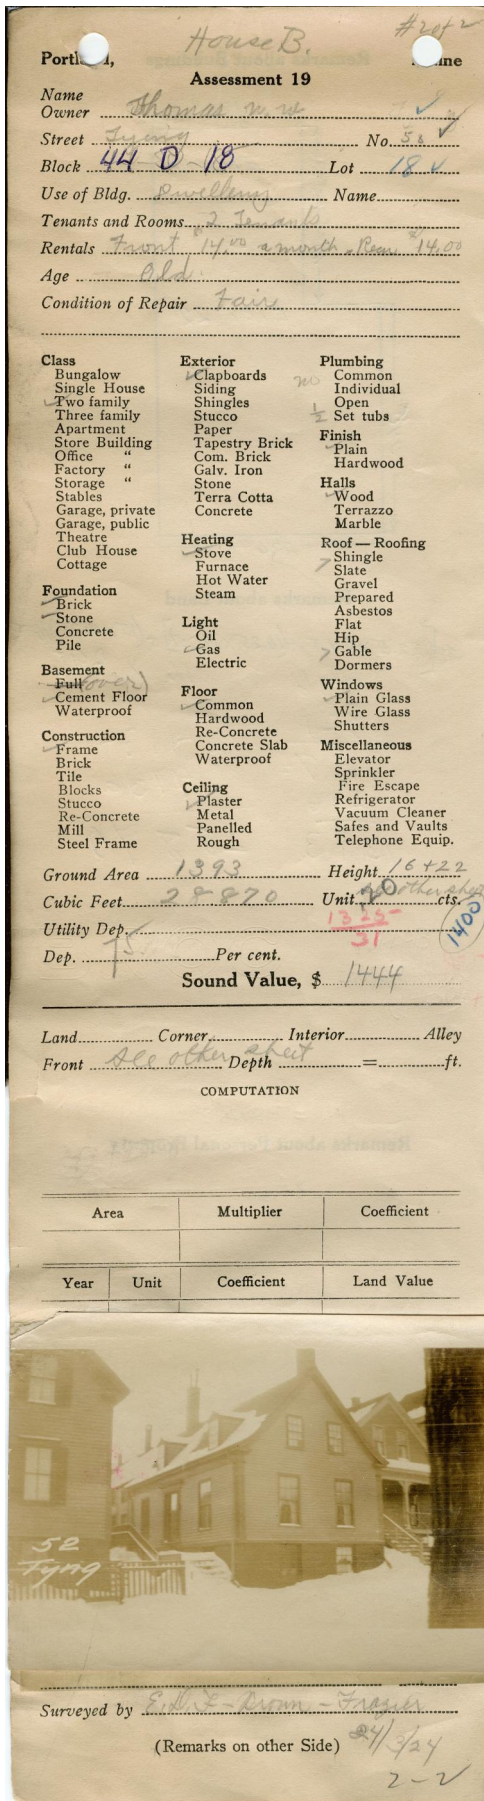 House B. #2 of 2
Portland, Maine
Assessment 19
Name
Owner Thomas W. W.
Street Tyng No. 52
Block 44 D 18 Lot 18
Use of Bldg. Dwelling Name
Tenants and Rooms 2 Tenants
Rentals Front $14.00 a month - Rear $14.00
Age Old.
Condition of Repair Fair
Class
Bungalow
Single House
✓ Two family
Three family
Apartment
Store Building
Office "
Factory "
Storage "
Stables
Garage, private
Garage, public
Theatre
Club House
Cottage
Foundation
✓ Brick
✓ Stone
Concrete
Pile
Basement
Full (over)
✓ Cement Floor
Waterproof
Construction
✓ Frame
Brick
Tile
Blocks
Stucco
Re-Concrete
Mill
Steel Frame
Exterior
✓ Clapboards
Siding
Shingles
Stucco
Paper
Tapestry Brick
Com. Brick
Galv. Iron
Stone
Terra Cotta
Concrete
Heating
✓ Stove
Furnace
Hot Water
Steam
Light
Oil
✓ Gas
Electric
Floor
✓ Common
Hardwood
Re-Concrete
Concrete Slab
Waterproof
Ceiling
✓ Plaster
Metal
Panelled
Rough
Plumbing
no Common
Individual
Open
½ Set tubs
Finish
✓ Plain
Hardwood
Halls
✓ Wood
Terrazzo
Marble
Roof — Roofing
✓ Shingle
Slate
Gravel
Prepared
Asbestos
Flat
Hip
✓ Gable
Dormers
Windows
✓ Plain Glass
Wire Glass
Shutters
Miscellaneous
Elevator
Sprinkler
Fire Escape
Refrigerator
Vacuum Cleaner
Safes and Vaults
Telephone Equip.
Ground Area 1393 Height 16+22
Cubic Feet 28870 Unit 20 cts.
Utility Dep. 1325
31
1400
Dep. 75 Per cent.
Sound Value, $ 1444
Land Corner Interior Alley
Front See other sheet Depth = ft.
COMPUTATION
Area Multiplier Coefficient
Year Unit Coefficient Land Value
52
Tyng
Surveyed by E.D.F - Brown - Frazier
(Remarks on other Side) 24/3/24
2-2